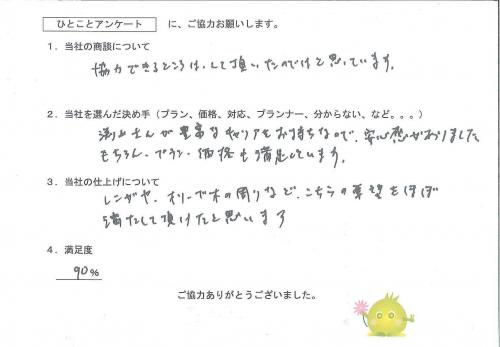 ひとことアンケート に、ご協力お願いします。
1．当社の商談について
協力できるところは、して頂いたのではと思っています。
2．当社を選んだ決め手（プラン、価格、対応、プランナー、分からない、など。。。）
渕上さんが豊富なキャリアをお持ちなので、安心感がありました
もちろん、プラン・価格も満足しています。
3．当社の仕上げについて
レンガや、オリーブ木の周りなど、こちらの要望をほぼ
満たして頂けたと思います
4．満足度
90%
ご協力ありがとうございました。